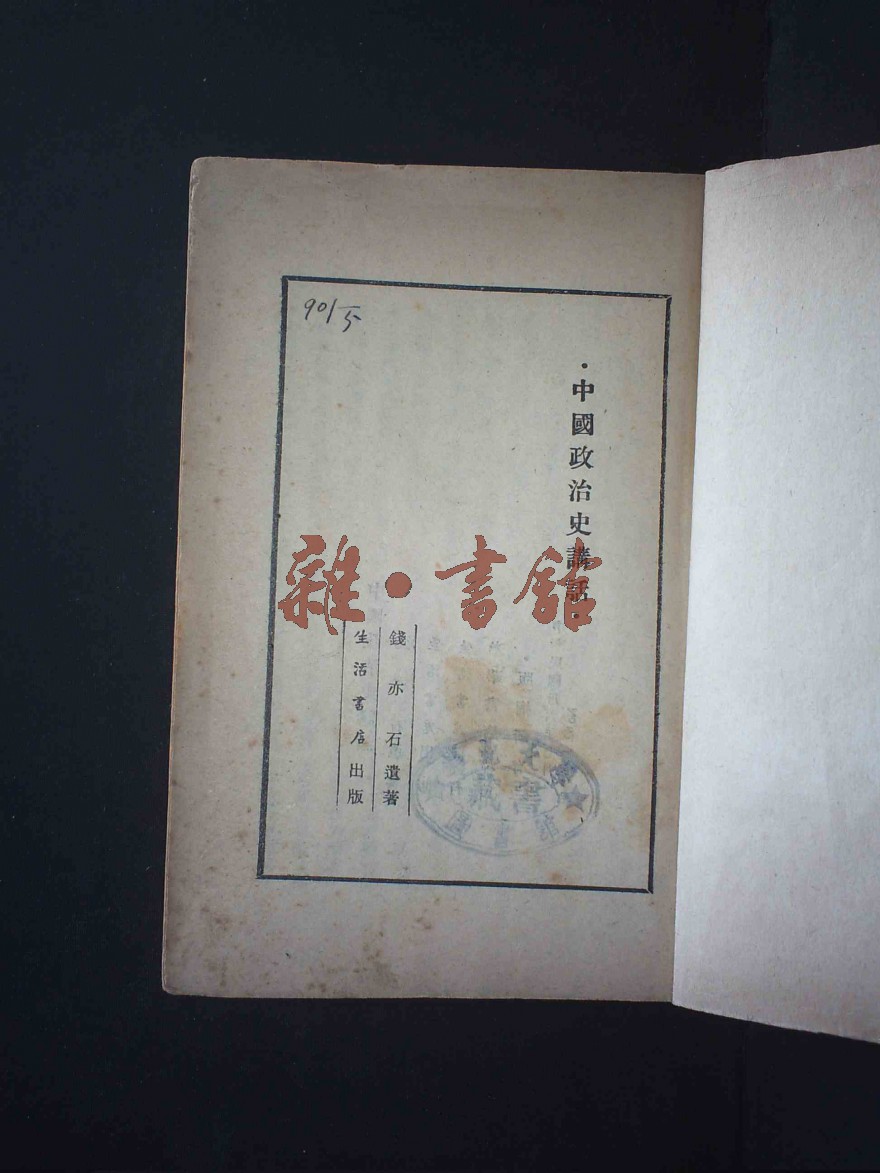 901/5
·中國政治史講話·
錢亦石遺著
生活書店出版
雜·書館